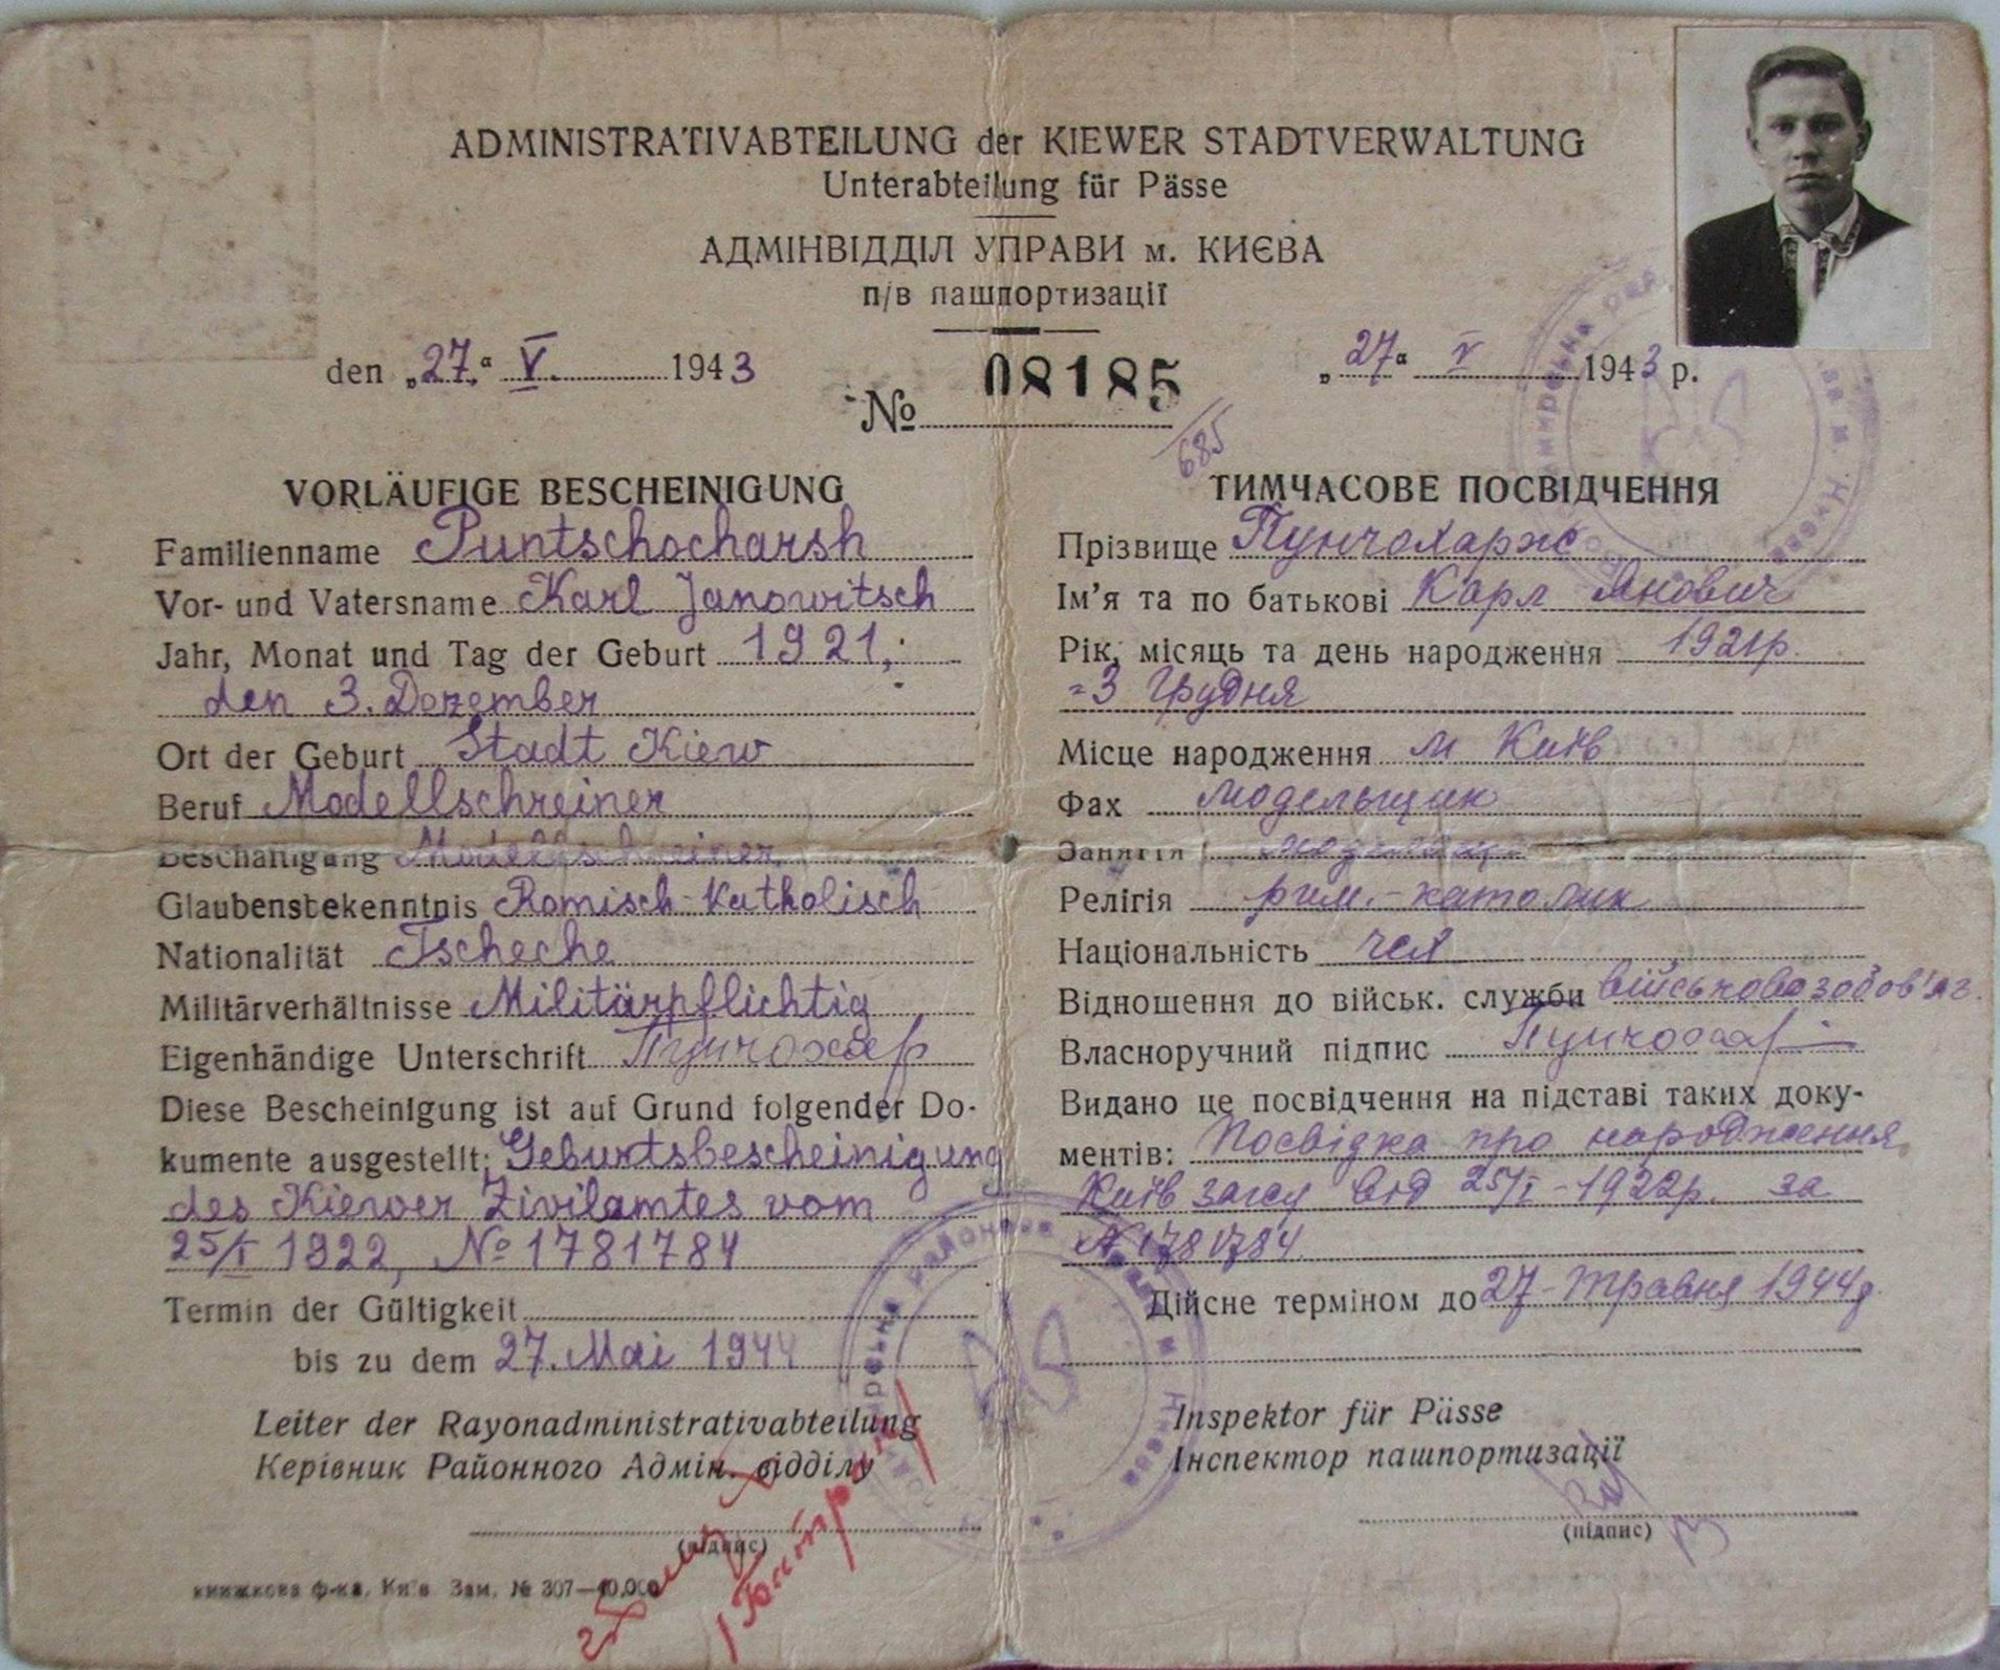 ADMINISTRATIVABTEILUNG der KIEWER STADTVERWALTUNG
Unterabteilung für Pässe
АДМІНВІДДІЛ УПРАВИ м. КИЄВА
п/в пашпортизації
den „27.“ V. 1943
„27“ V 1943 р.
№ 08185
685
VORLÄUFIGE BESCHEINIGUNG
Familienname Puntschocharsh
Vor- und Vatersname Karl Janowitsch
Jahr, Monat und Tag der Geburt 1921,
den 3. Dezember
Ort der Geburt Stadt Kiew
Beruf Modellschreiner
Beschäftigung Modellschreiner
Glaubensbekenntnis Römisch-Katholisch
Nationalität Tscheche
Militärverhältnisse Militärpflichtig
Eigenhändige Unterschrift Пунчохар
Diese Bescheinigung ist auf Grund folgender Do-
kumente ausgestellt: Geburtsbescheinigung
des Kiewer Zivilamtes vom
25/I 1922, № 1781784
Termin der Gültigkeit
bis zu dem 27. Mai 1944
Leiter der Rayonadministrativabteilung
Керівник Районного Адмін. відділу
(підпис)
книжкова ф-ка, Київ Зам. № 307—10.000
ТИМЧАСОВЕ ПОСВІДЧЕННЯ
Прізвище Пунчохарж
Ім'я та по батькові Карл Янович
Рік, місяць та день народження 1921р.
3 Грудня
Місце народження м Київ
Фах модельщик
Заняття
Релігія рим.-католик
Національність чех
Відношення до військ. служби військовозобов'яз.
Власноручний підпис Пунчохар
Видано це посвідчення на підставі таких доку-
ментів: Посвідка про народження
Київ загсу від 25/I-1922р. за
№ 1781784
Дійсне терміном до 27-Травня 1944р
Inspektor für Pässe
Інспектор пашпортизації
(підпис)